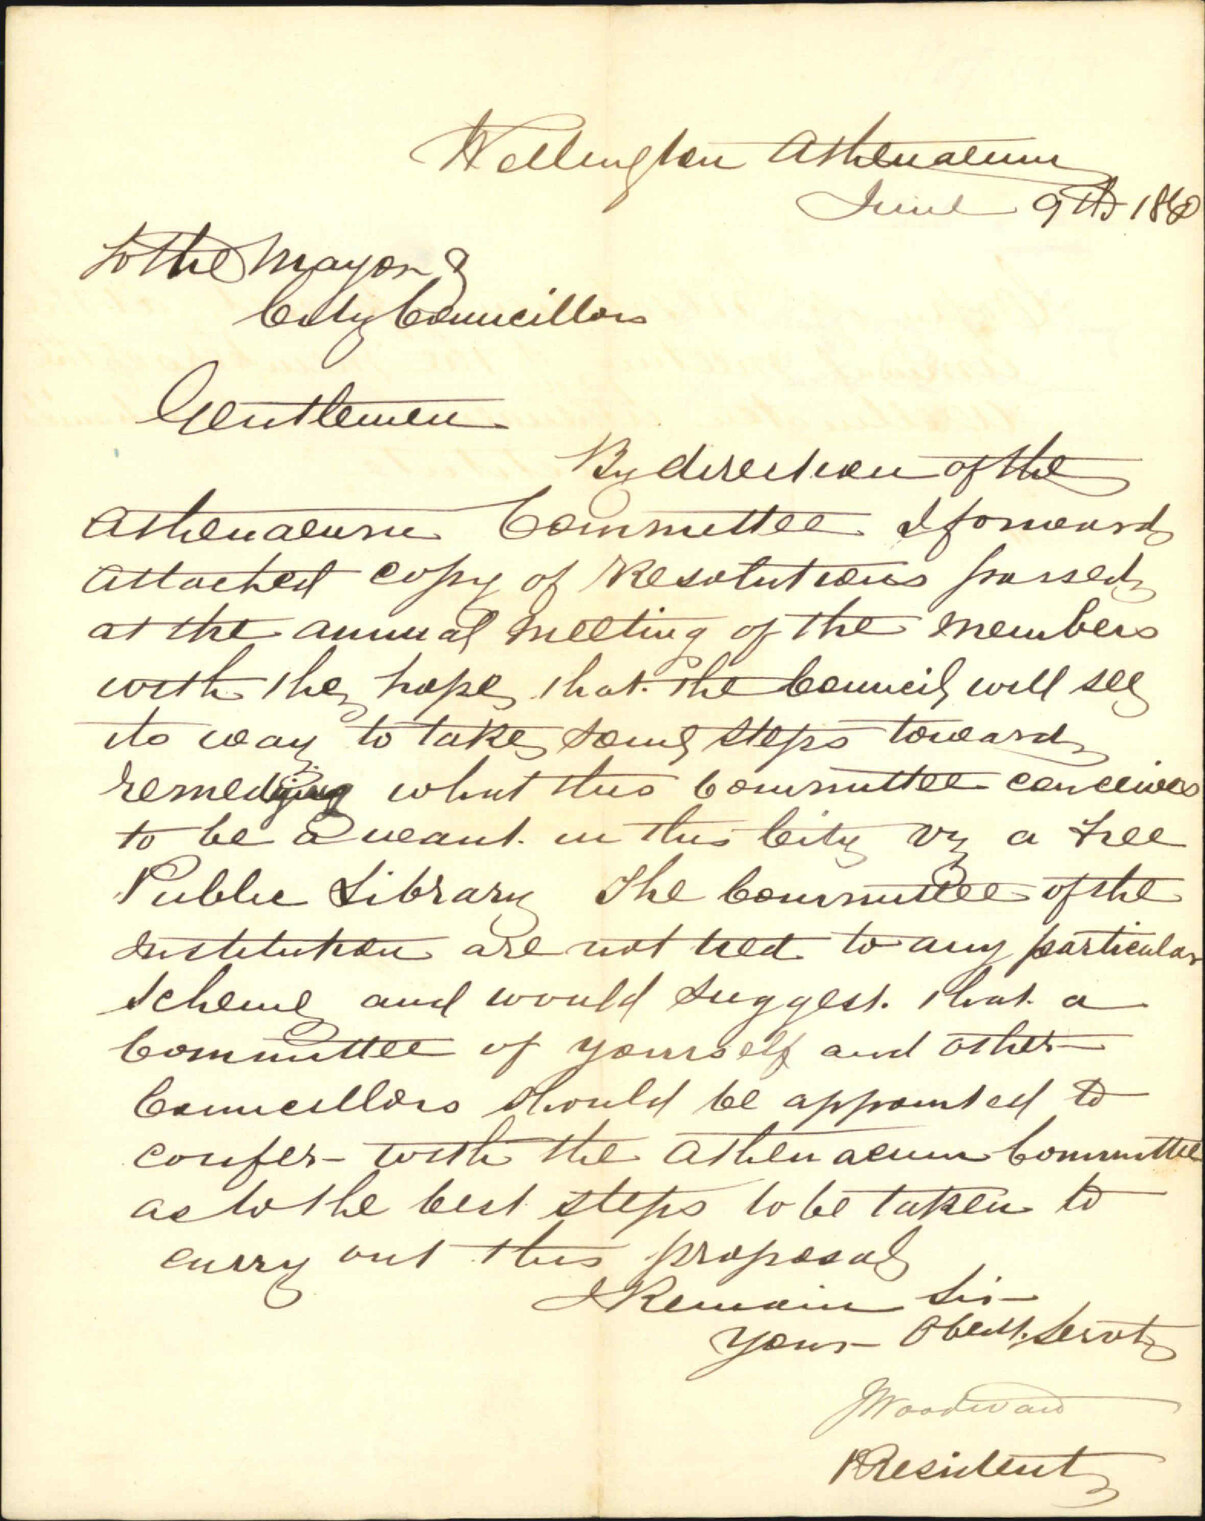 Wellington Athenaeum
June 9th 1880
To the Mayor &
City Councillors
Gentlemen
By direction of the
Athenaeum Committee I forward
attached copy of Resolutions passed
at the annual meeting of the members
with the hope that the Council will see
its way to take some steps toward
remedying what this Committee conceives
to be a want in this City vz a Free
Public Library The Committee of the
Institution are not tied to any particular
scheme and would suggest that a
Committee of yourself and other
Councillors should be appointed to
confer with the Athenaeum Committee
as to the best steps to be taken to
carry out this proposal
I Remain Sir
Your Obedt. Servt
J Woodward
President